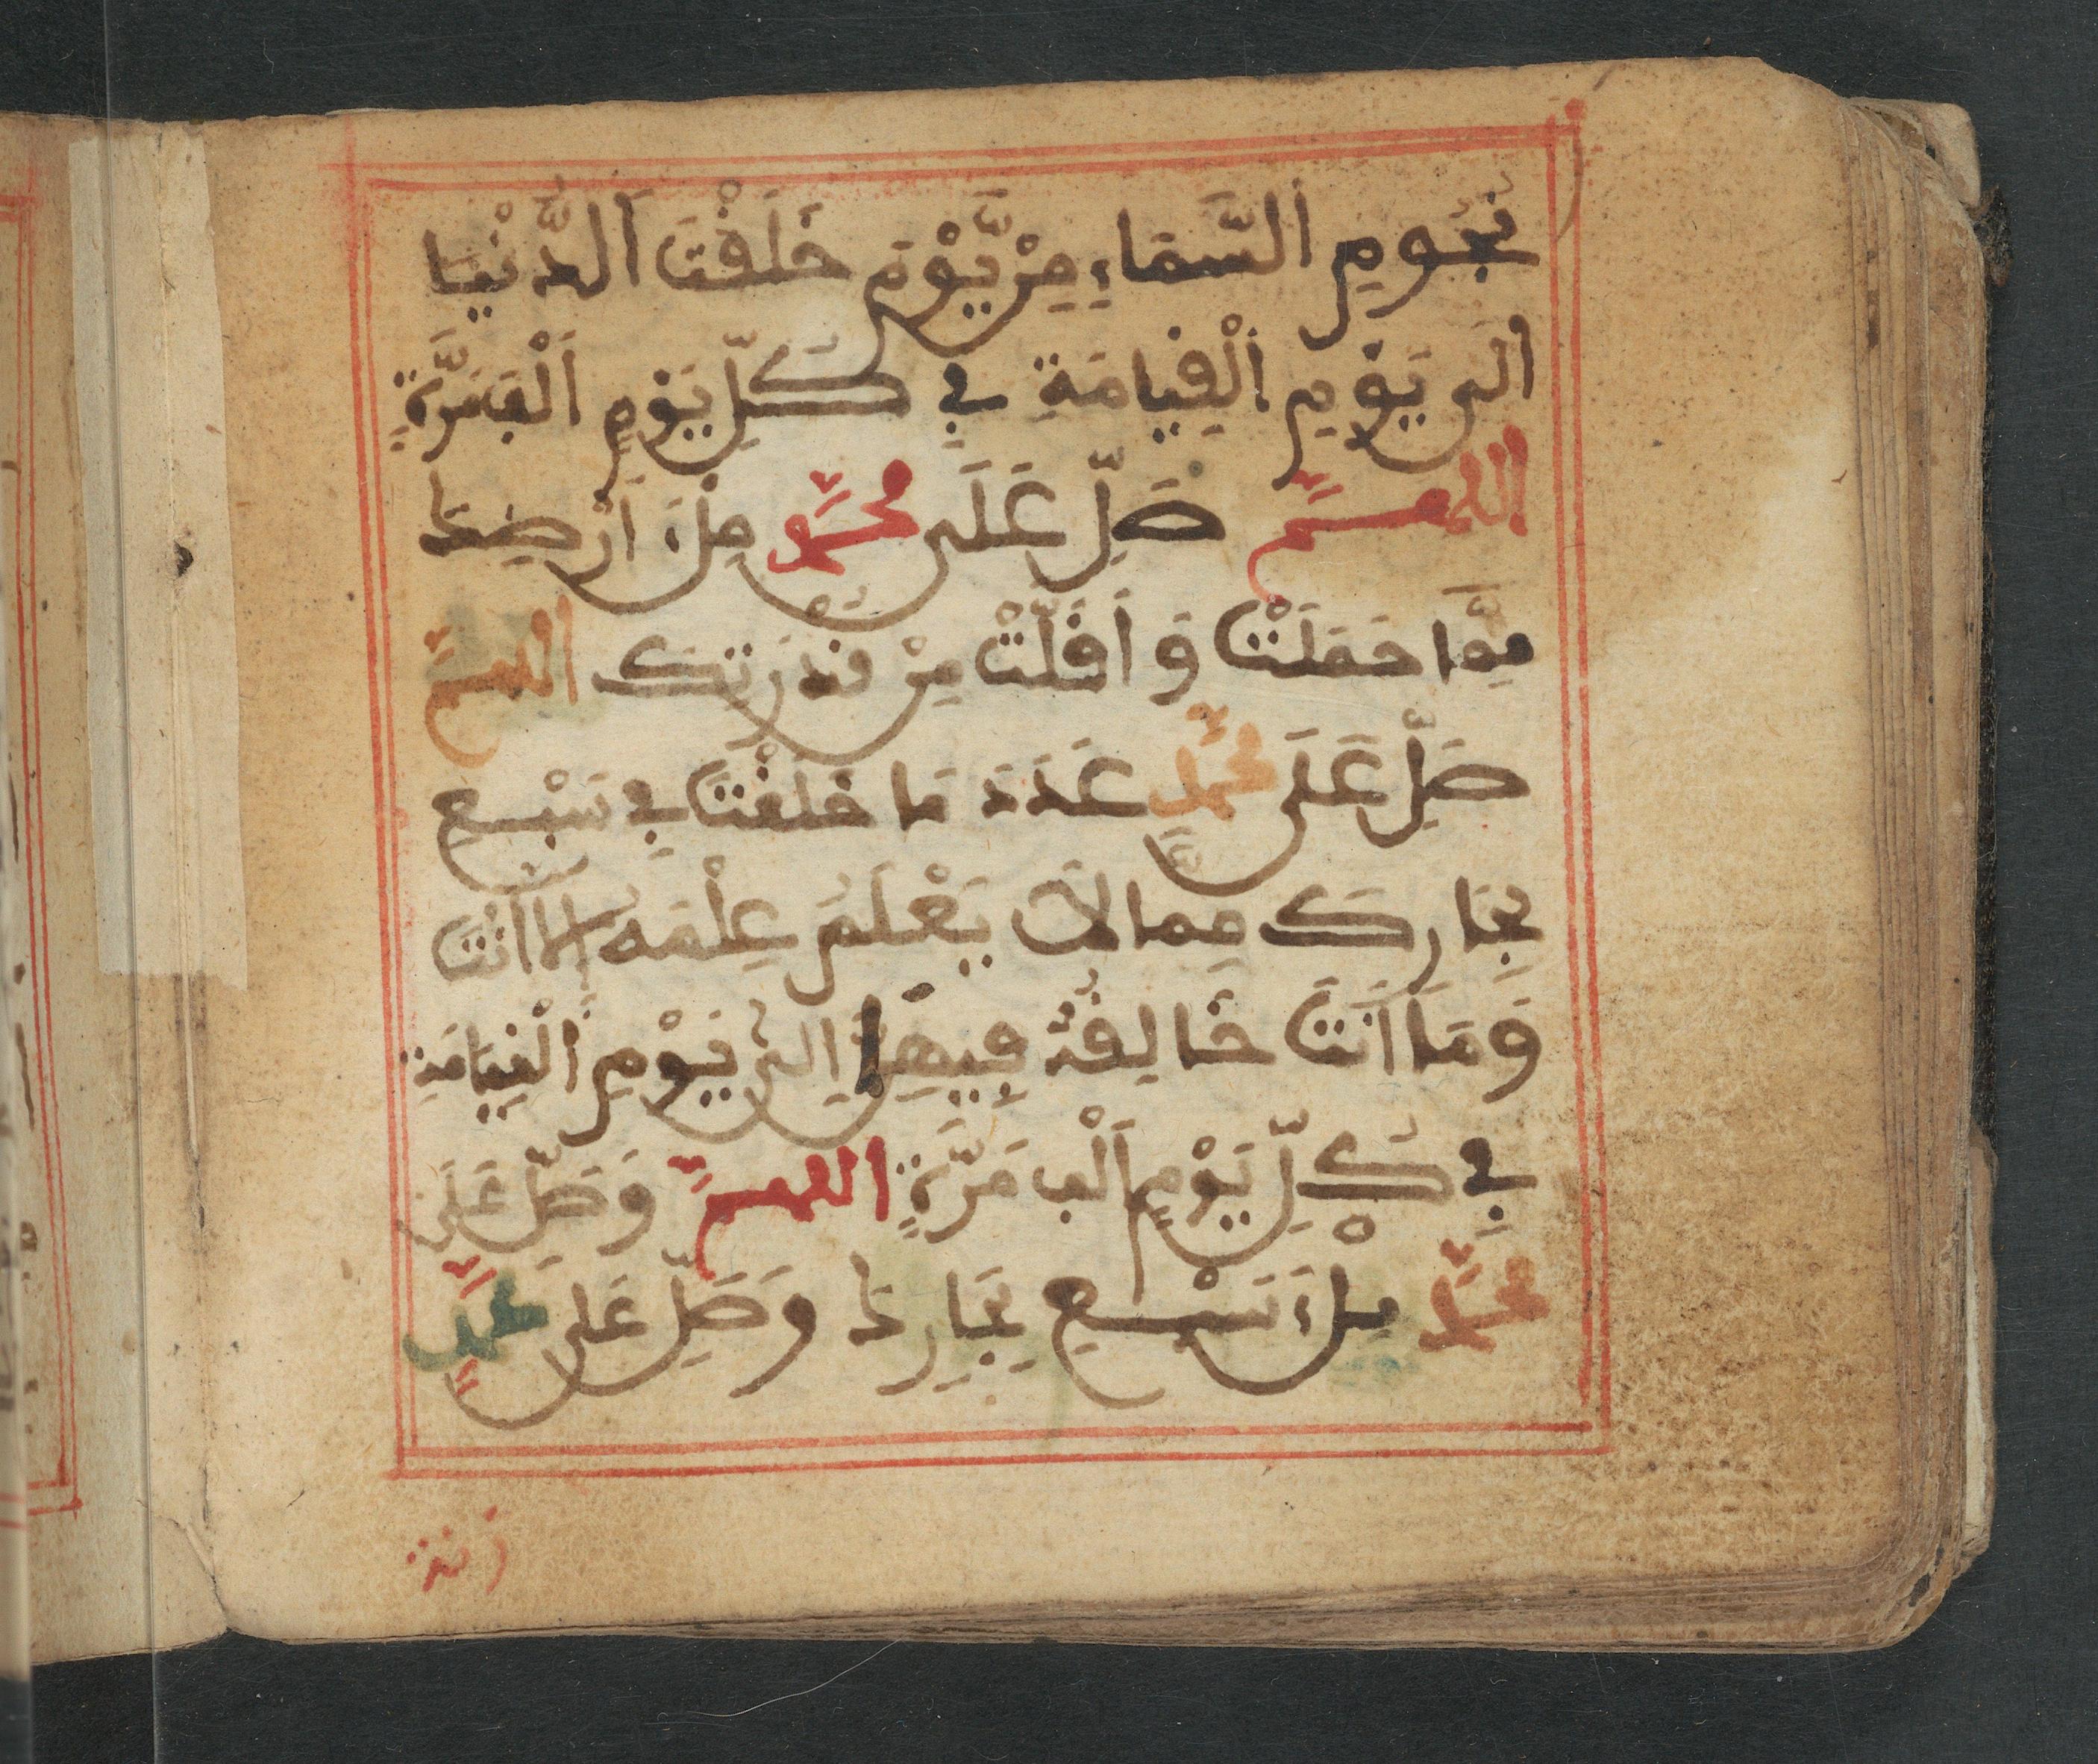 نُجُومِ اَلسَّمَاءِ مِنْ يَّوْمَ خَلَقْتَ اَلدُّنْيَا
اِلَى يَوْمِ اِلْقِيَامَةِ فِي كُلِّ يَوْمٍ اَلْفَ مَرَّةٍ
اللهم صَلِّ عَلَى مُحَمَّدٍ مِلْءَ اَرْضِكَ
مِمَّا حَمَلَتْ وَ اَقَلَّتْ مِنْ قُدْرَتِكَ اللهم
صَلِّ عَلَى مُحَمَّدٍ عَدَدَ مَا خَلَقْتَ فِي سَبْعِ
بِحَارِكَ مِمَّا لَا يَعْلَمُ عِلْمَهُ إِلَّا أَنْتَ
وَمَا أَنْتَ خَالِقُهُ فِيهَا إِلَى يَوْمِ اِلْقِيَامَةِ
فِي كُلِّ يَوْمٍ اَلْفَ مَرَّةٍ اللهم وَصَلِّ عَلَى
مُحَمَّدٍ مِلْءَ سَبْعِ بِحَارِكَ وَصَلِّ عَلَى مُحَمَّدٍ
زنة